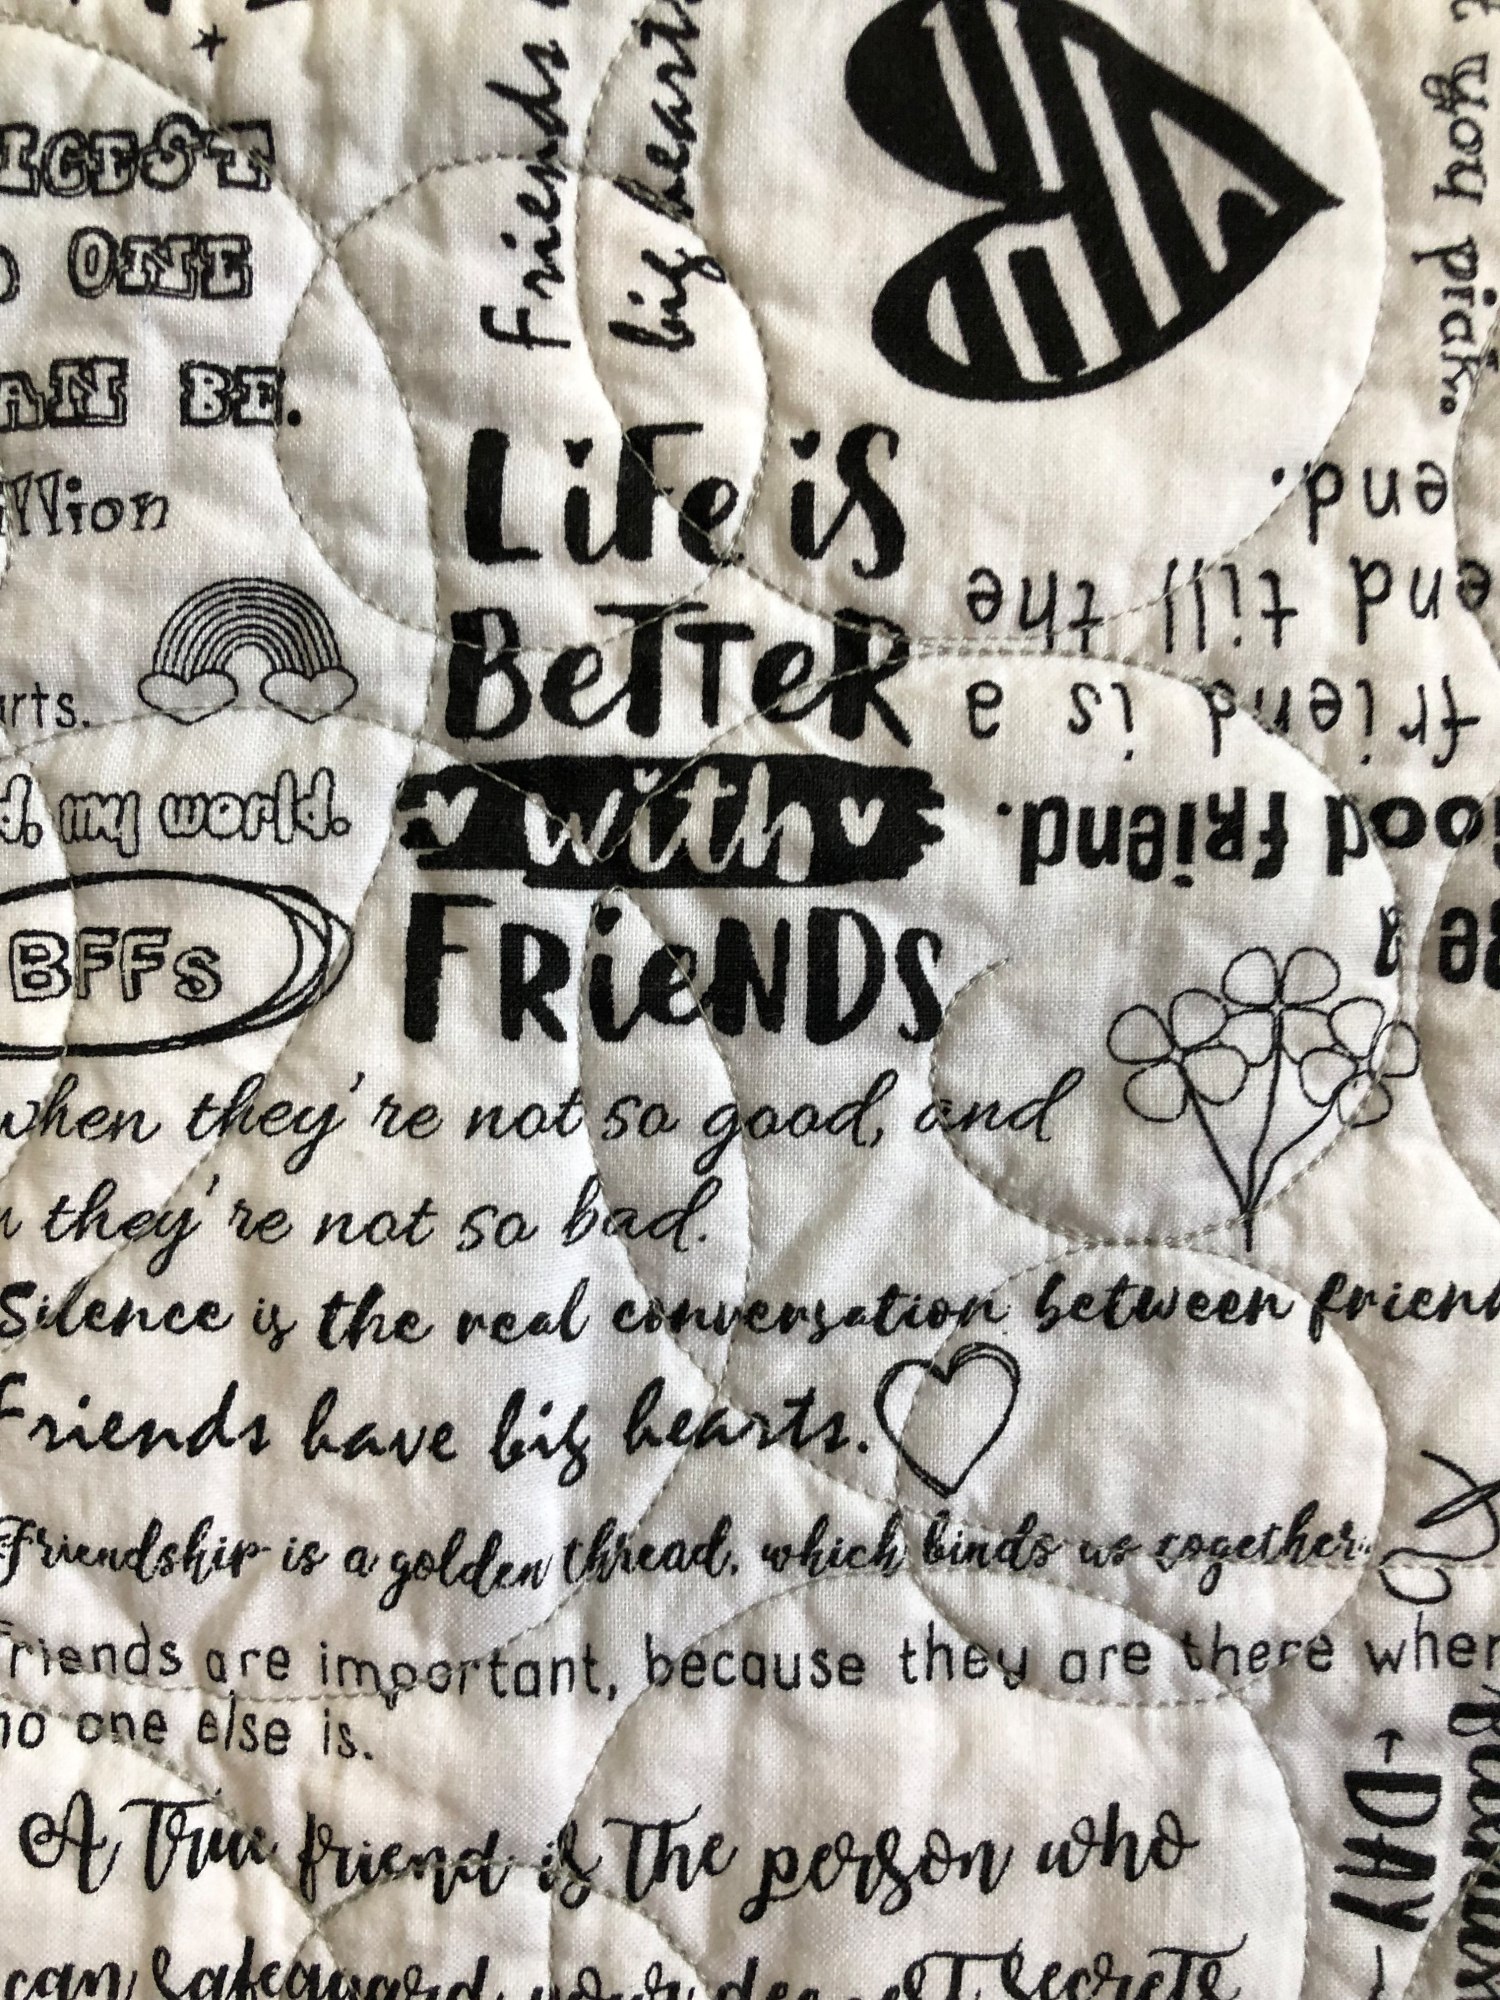 ONE
BE.
my world.
BFFs
Friends
big hearts
you pick.
LiFe is
BeTTeR
with
FRieNDS
Be a
good friend.
friend is a
end till the
end.
when they're not so good, and
they're not so bad.
Silence is the real conversation between
Friends have big hearts.
Friendship is a golden thread, which binds us together.
Friends are important, because they are there when
no one else is.
A True friend is The person who
can safeguard your deepest secrets
DAY